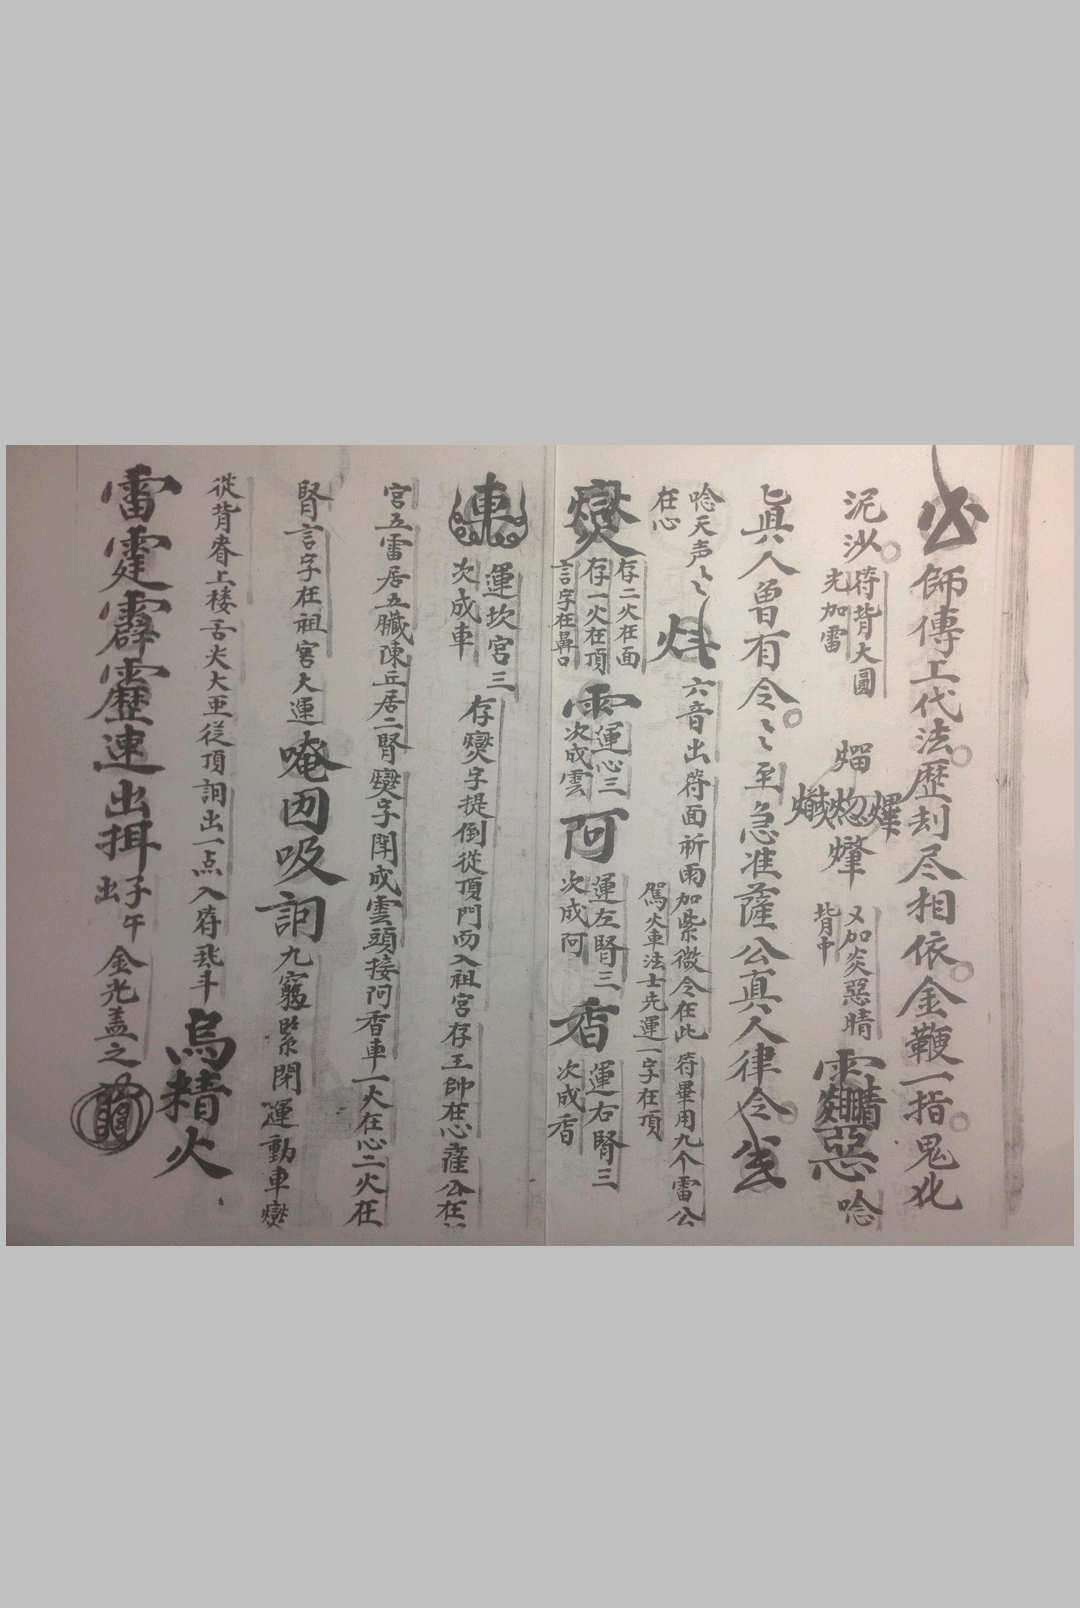 師傳上代法歷刦尽相依金鞭一指鬼化
泥沙
符背大圓
先加雷
又加炎惡晴
背中
惡
唸
真人曾有令〻至急准薩公真人律令
唸天声〻
在心
六音出符面祈雨加紫微令在此符畢用九个雷公
駕火車法士先運一字在頂
爕
存二火在面
存一火在頂
言字在鼻口
雲
運心三
次成雲
阿
運左腎三
次成阿
香
運右腎三
次成香
車
運坎宮三
次成車
存爕字提倒從頂門而入祖宮存王帥在心薩公在
宮五雷居五臟陳丘居二腎爕字閗成雲頭接阿香車一火在心二火在
腎言字在祖宮大運
唵囙吸訶
九竅緊閉運動車爕
從背脊上楼舌尖大
從頂
出一点入符
斗
烏精火
雷霆霹靂連出
子午
出
金光盖之